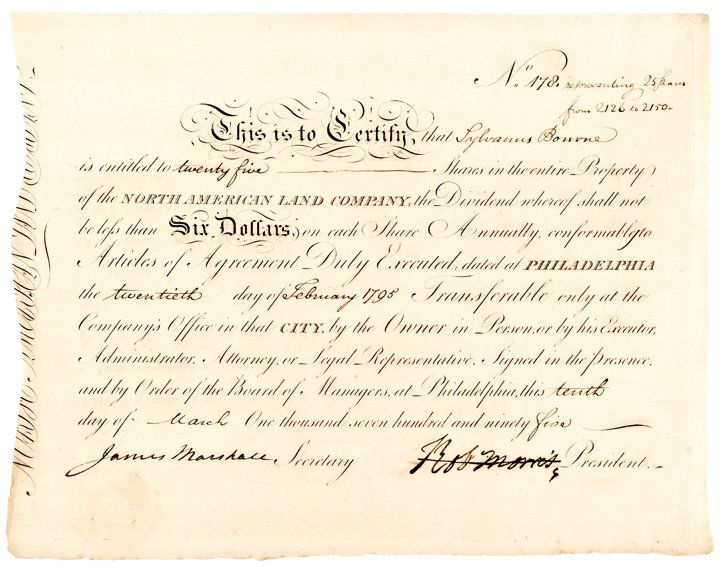 No. 178. representing 25 shares
from 2126 to 2150-
This is to Certify, that Sylvanus Bourne
is entitled to twenty five Shares in the entire Property
of the NORTH AMERICAN LAND COMPANY, the Dividend whereof shall not
be less than Six Dollars, on each Share Annually, conformably to
Articles of Agreement Duly Executed, dated at PHILADELPHIA
the twentieth day of February 1795 Transferable only at the
Company's Office in that CITY, by the Owner in Person, or by his Executor,
Administrator, Attorney, or Legal Representative. Signed in the presence,
and by Order of the Board of Managers, at Philadelphia, this tenth
day of March One thousand seven hundred and ninety five
James Marshall, Secretary Rob Morris, President.